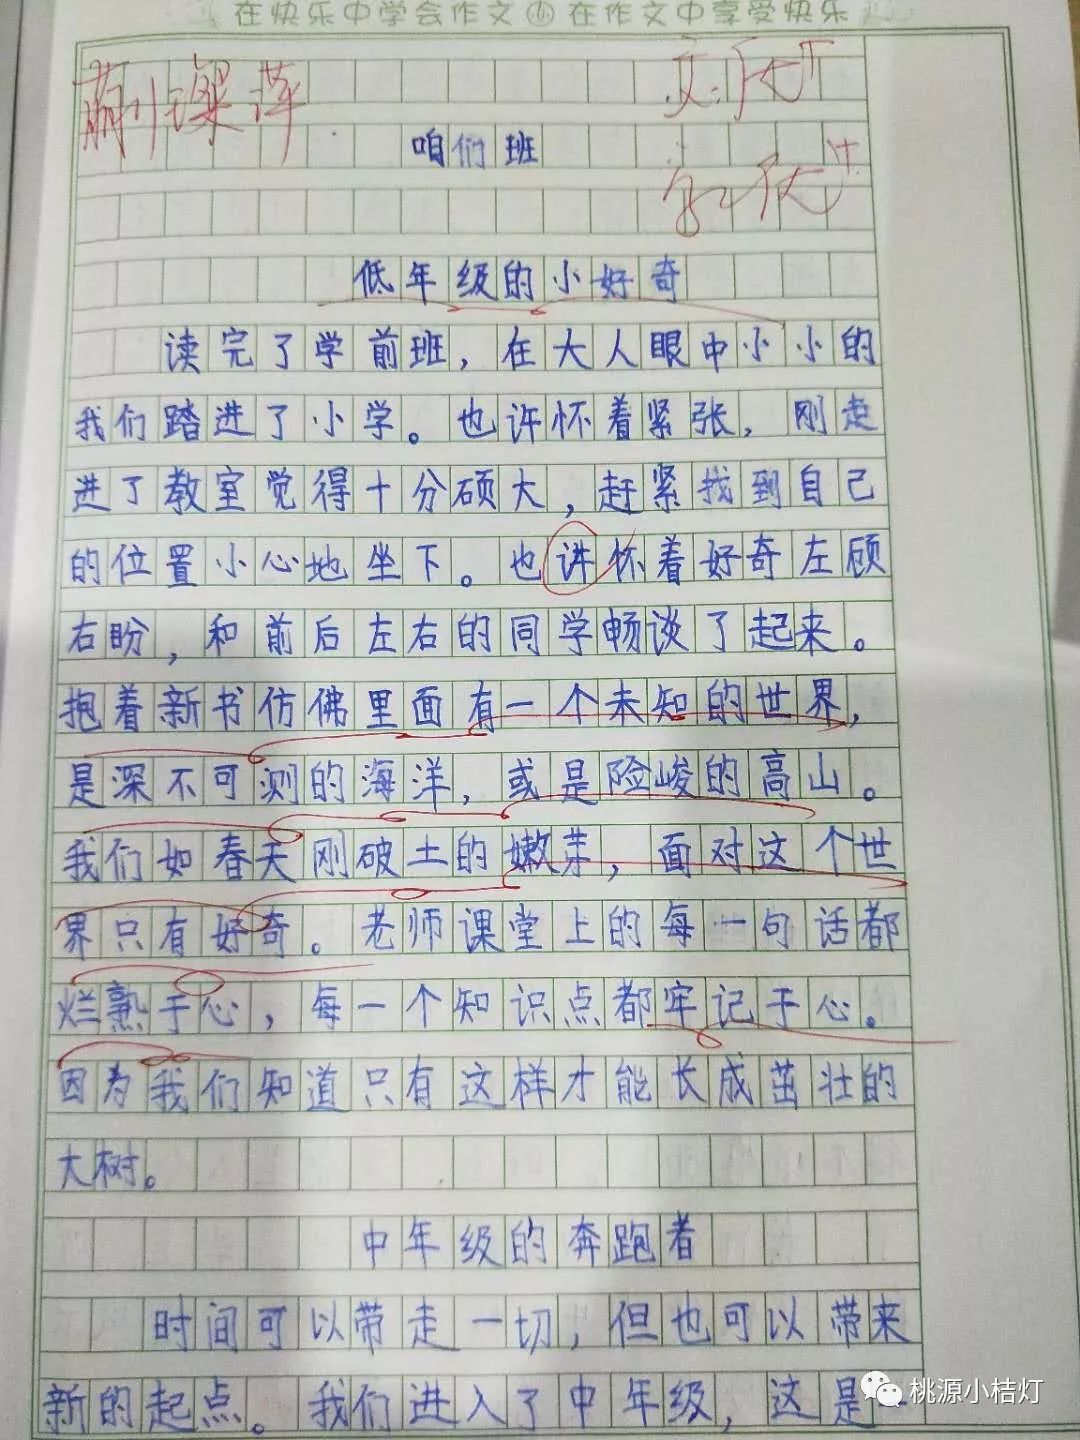 在快乐中学会作文 在作文中享受快乐
咱们班
低年级的小好奇
读完了学前班，在大人眼中小小的
我们踏进了小学。也许怀着紧张，刚走
进了教室觉得十分硕大，赶紧找到自己
的位置小心地坐下。也许怀着好奇左顾
右盼，和前后左右的同学畅谈了起来。
抱着新书仿佛里面有一个未知的世界，
是深不可测的海洋，或是险峻的高山。
我们如春天刚破土的嫩芽，面对这个世
界只有好奇。老师课堂上的每一句话都
烂熟于心，每一个知识点都牢记于心。
因为我们知道只有这样才能长成茁壮的
大树。
中年级的奔跑者
时间可以带走一切，但也可以带来
新的起点。我们进入了中年级，这是一
桃源小桔灯